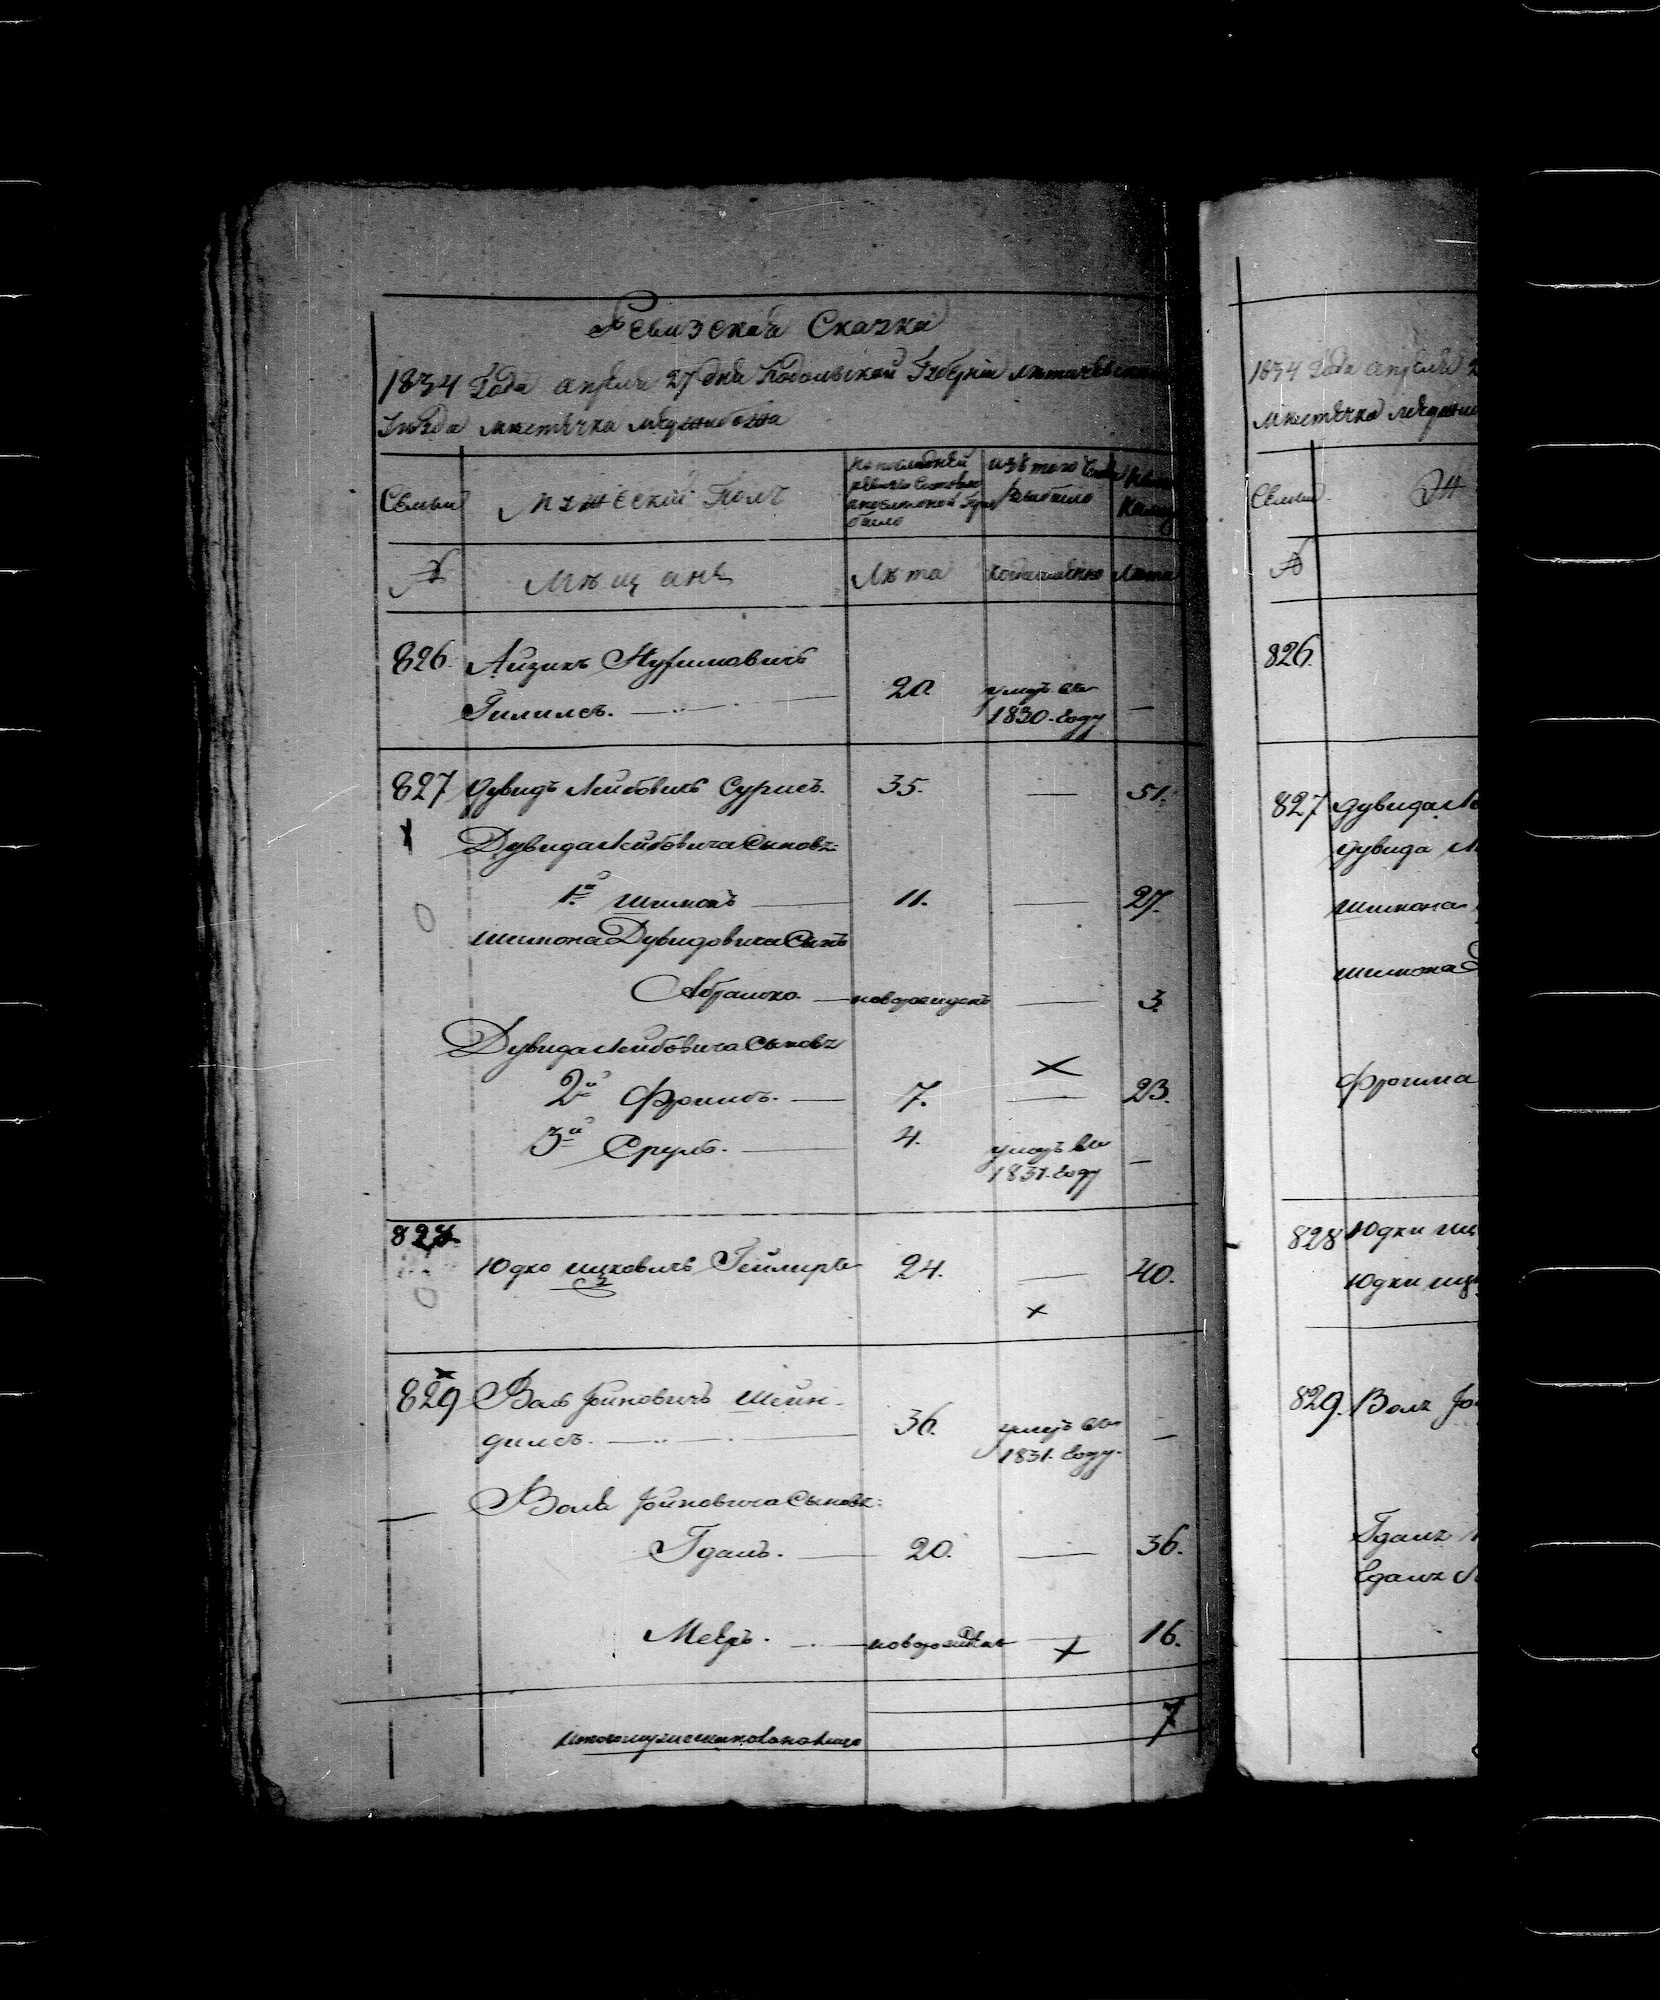 Ревизская Скаска
1834 Года апреля 27 дня Подольской Губерніи Летичевского
Уезда местечка Меджибожа
Семьи
Мужескій Полъ
На последней
ревизіи состояло
и после оной при
было
изъ того числа
выбыло
Ныне
№
Мещане
Лета
когда именно
Лета
826.
Айзикъ Нухимовичъ
Гилилсъ.
20.
умеръ въ
1830. году
—
827
Дувидъ Лейбовичъ Сурисъ.
35.
—
51.
Дувида Лейбовича Сыновъя:
1й Шимонъ
11.
—
27.
Шимона Дувидовича Сынъ
Абрамко.
новорожденъ
—
3.
Дувида Лейбовича Сыновъя
2й Фроимъ.
7.
—
23.
3й Сруль.
4.
умеръ въ
1831. году
—
828.
Юдко Ицковичъ Геллеръ
24.
—
40.
829
Воль Іойновичъ Шейн-
дилсъ.
36.
умеръ въ
1831. году.
—
Воля Іойновича Сыновъя:
Гдаль.
20.
—
36.
Мееръ.
новорожденъ
—
16.
Итого мужеска пола на лицо
7
1834 Года апреля 2
местечка Меджи
Семьи.
№
826.
827
Дувида Ле
Дувида Л
Шимона
Шимона Д
Фроима
828
Юдки Иц
Юдки Иц
829.
Воля Іо
Гдаля
Гдаля